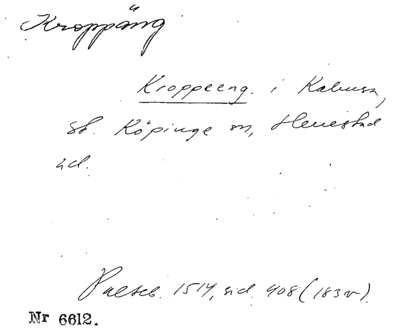 Kroppäng
Kroppeeng. i Kabusa,
St. Köpinge sn, Herrestad
sid.
Palteb. 1514, sid. 408 (183v).
Nr 6612.